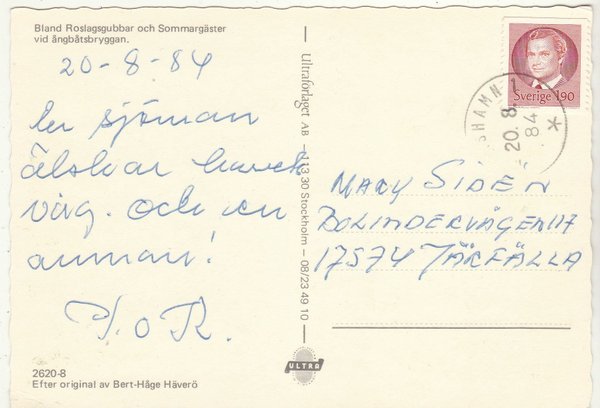 Bland Roslagsgubbar och Sommargäster
vid ångbåtsbryggan.
20-8-84
En sjöman
älskar havets
våg. och en
annan!
o R.
2620-8
Efter original av Bert-Håge Häverö
Ultraförlaget AB – 113 30 Stockholm – 08/23 49 10
ULTRA
Sverige 190
HAMN 1
20.8.
84
MARY SIDÉN
BOLINDERVÄGEN 117
17574 JÄRFÄLLA